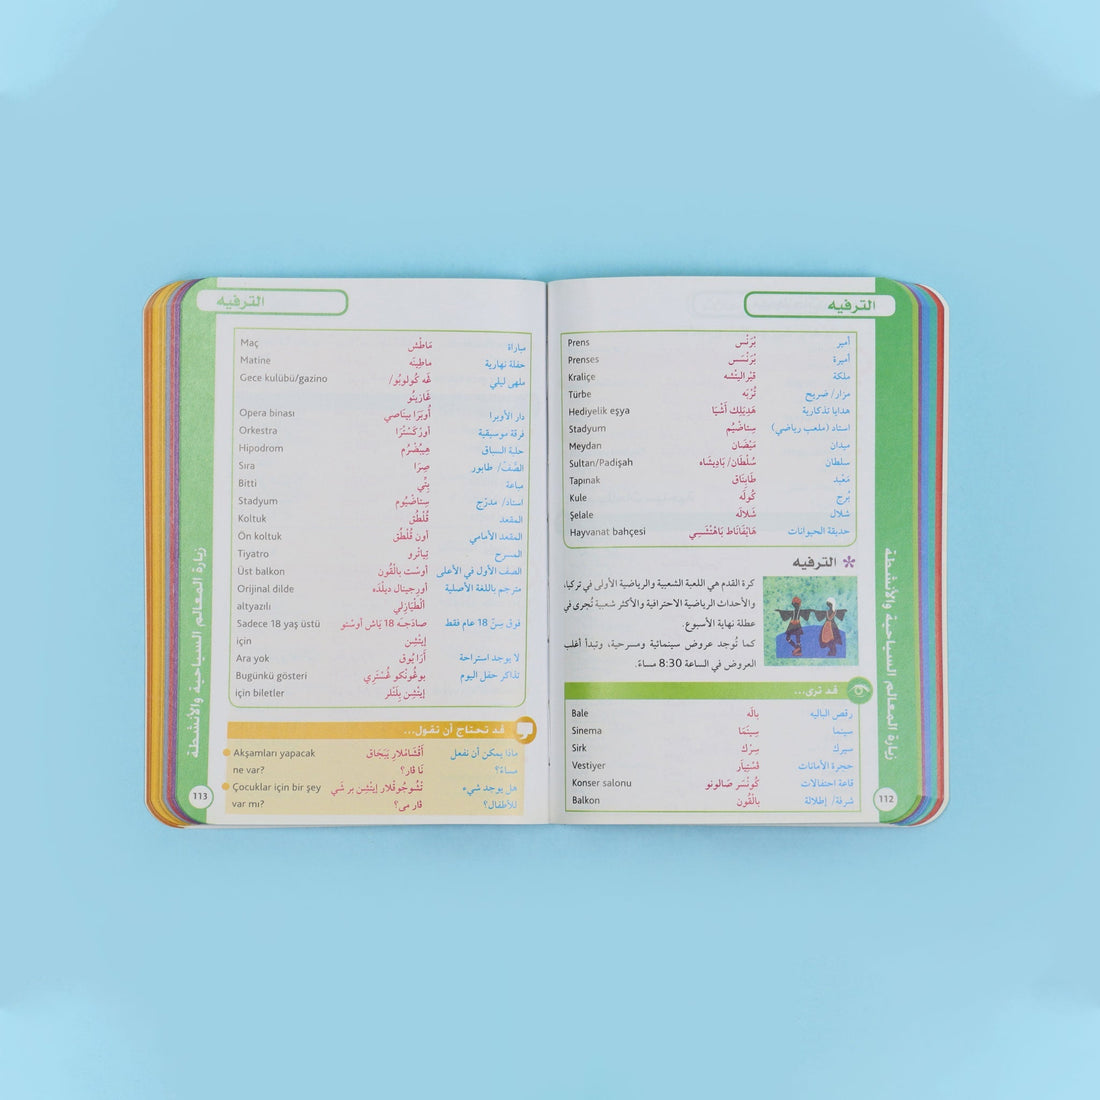 الترفيه
أمير بْرَنْس Prens
أميرة بْرَنْسَس Prenses
ملكة قيْرالِيتْشه Kraliçe
مزار/ ضريح تُرْبَه Türbe
هدايا تذكارية هَدِيَلِك أَشْيَا Hediyelik eşya
استاد (ملعب رياضي) سِتاضْيُم Stadyum
ميدان مَيْضَان Meydan
سلطان سُلْطَان/ بَادِيشَاه Sultan/Padişah
مَعْبد طَابِنَاق Tapınak
بُرج كُولَه Kule
شلال شَلالَه Şelale
حديقة الحيوانات هَايْفَانَاط بَاهْتْشَسِي Hayvanat bahçesi
* الترفيه
كرة القدم هي اللعبة الشعبية والرياضية الأولى في تركيا،
والأحداث الرياضية الاحترافية والأكثر شعبية تُجرى في
عطلة نهاية الأسبوع.
كما تُوجد عروض سينمائية ومسرحية، وتبدأ أغلب
العروض في الساعة 8:30 مساءً.
قد ترى...
رقص الباليه بالَه Bale
سينما سِينَمَا Sinema
سيرك سِرْك Sirk
حجرة الأمانات فَسْتِيَار Vestiyer
قاعة احتفالات كُونْسَر صَالونو Konser salonu
شرفة/ إطلالة بالْقُون Balkon
زيارة المعالم السياحية والأنشطة
112
الترفيه
مباراة مَاطْش Maç
حفلة نهارية ماطِينَه Matine
ملهى ليلي غَه كُولوبُو/ Gece kulübü/gazino
غَازِينُو
دار الأوبرا أُوبَرَا بينَاصِي Opera binası
فرقة موسيقية أورْكَسْتْرَا Orkestra
حلبة السباق هيبُضْرُم Hipodrom
الصَّفّ/ طابور صِرَا Sıra
مباعة بِتِّي Bitti
استاد/ مدرّج سِتاضْيُوم Stadyum
المقعد قُلْطُق Koltuk
المقعد الأمامي أون قُلْطُق Ön koltuk
المسرح تِياتْرو Tiyatro
الصف الأول في الأعلى أوسْت بالْقُون Üst balkon
مترجم باللغة الأصلية أورجينال ديلْدَه Orijinal dilde
ألْطْيَازلي altyazılı
فوق سِنّ 18 عام فقط صادَجَه 18 يَاش أوسْتو Sadece 18 yaş üstü
إيتْشِن için
لا يوجد استراحة أَرَا يُوق Ara yok
تذاكر حفل اليوم بوغُونْكو غُسْتَري Bugünkü gösteri
إيتْشِن بِلَتْلر için biletler
قد تحتاج أن تقول...
ماذا يمكن أن نفعل أقْشَامْلار يَبَجَاق Akşamları yapacak
مساءً؟ نَا فَار؟ ne var?
هل يوجد شيء تْشوجُوقْلار إيتْشِن بر شَي Çocuklar için bir şey
للأطفال؟ فار مى؟ var mı?
زيارة المعالم السياحية والأنشطة
113